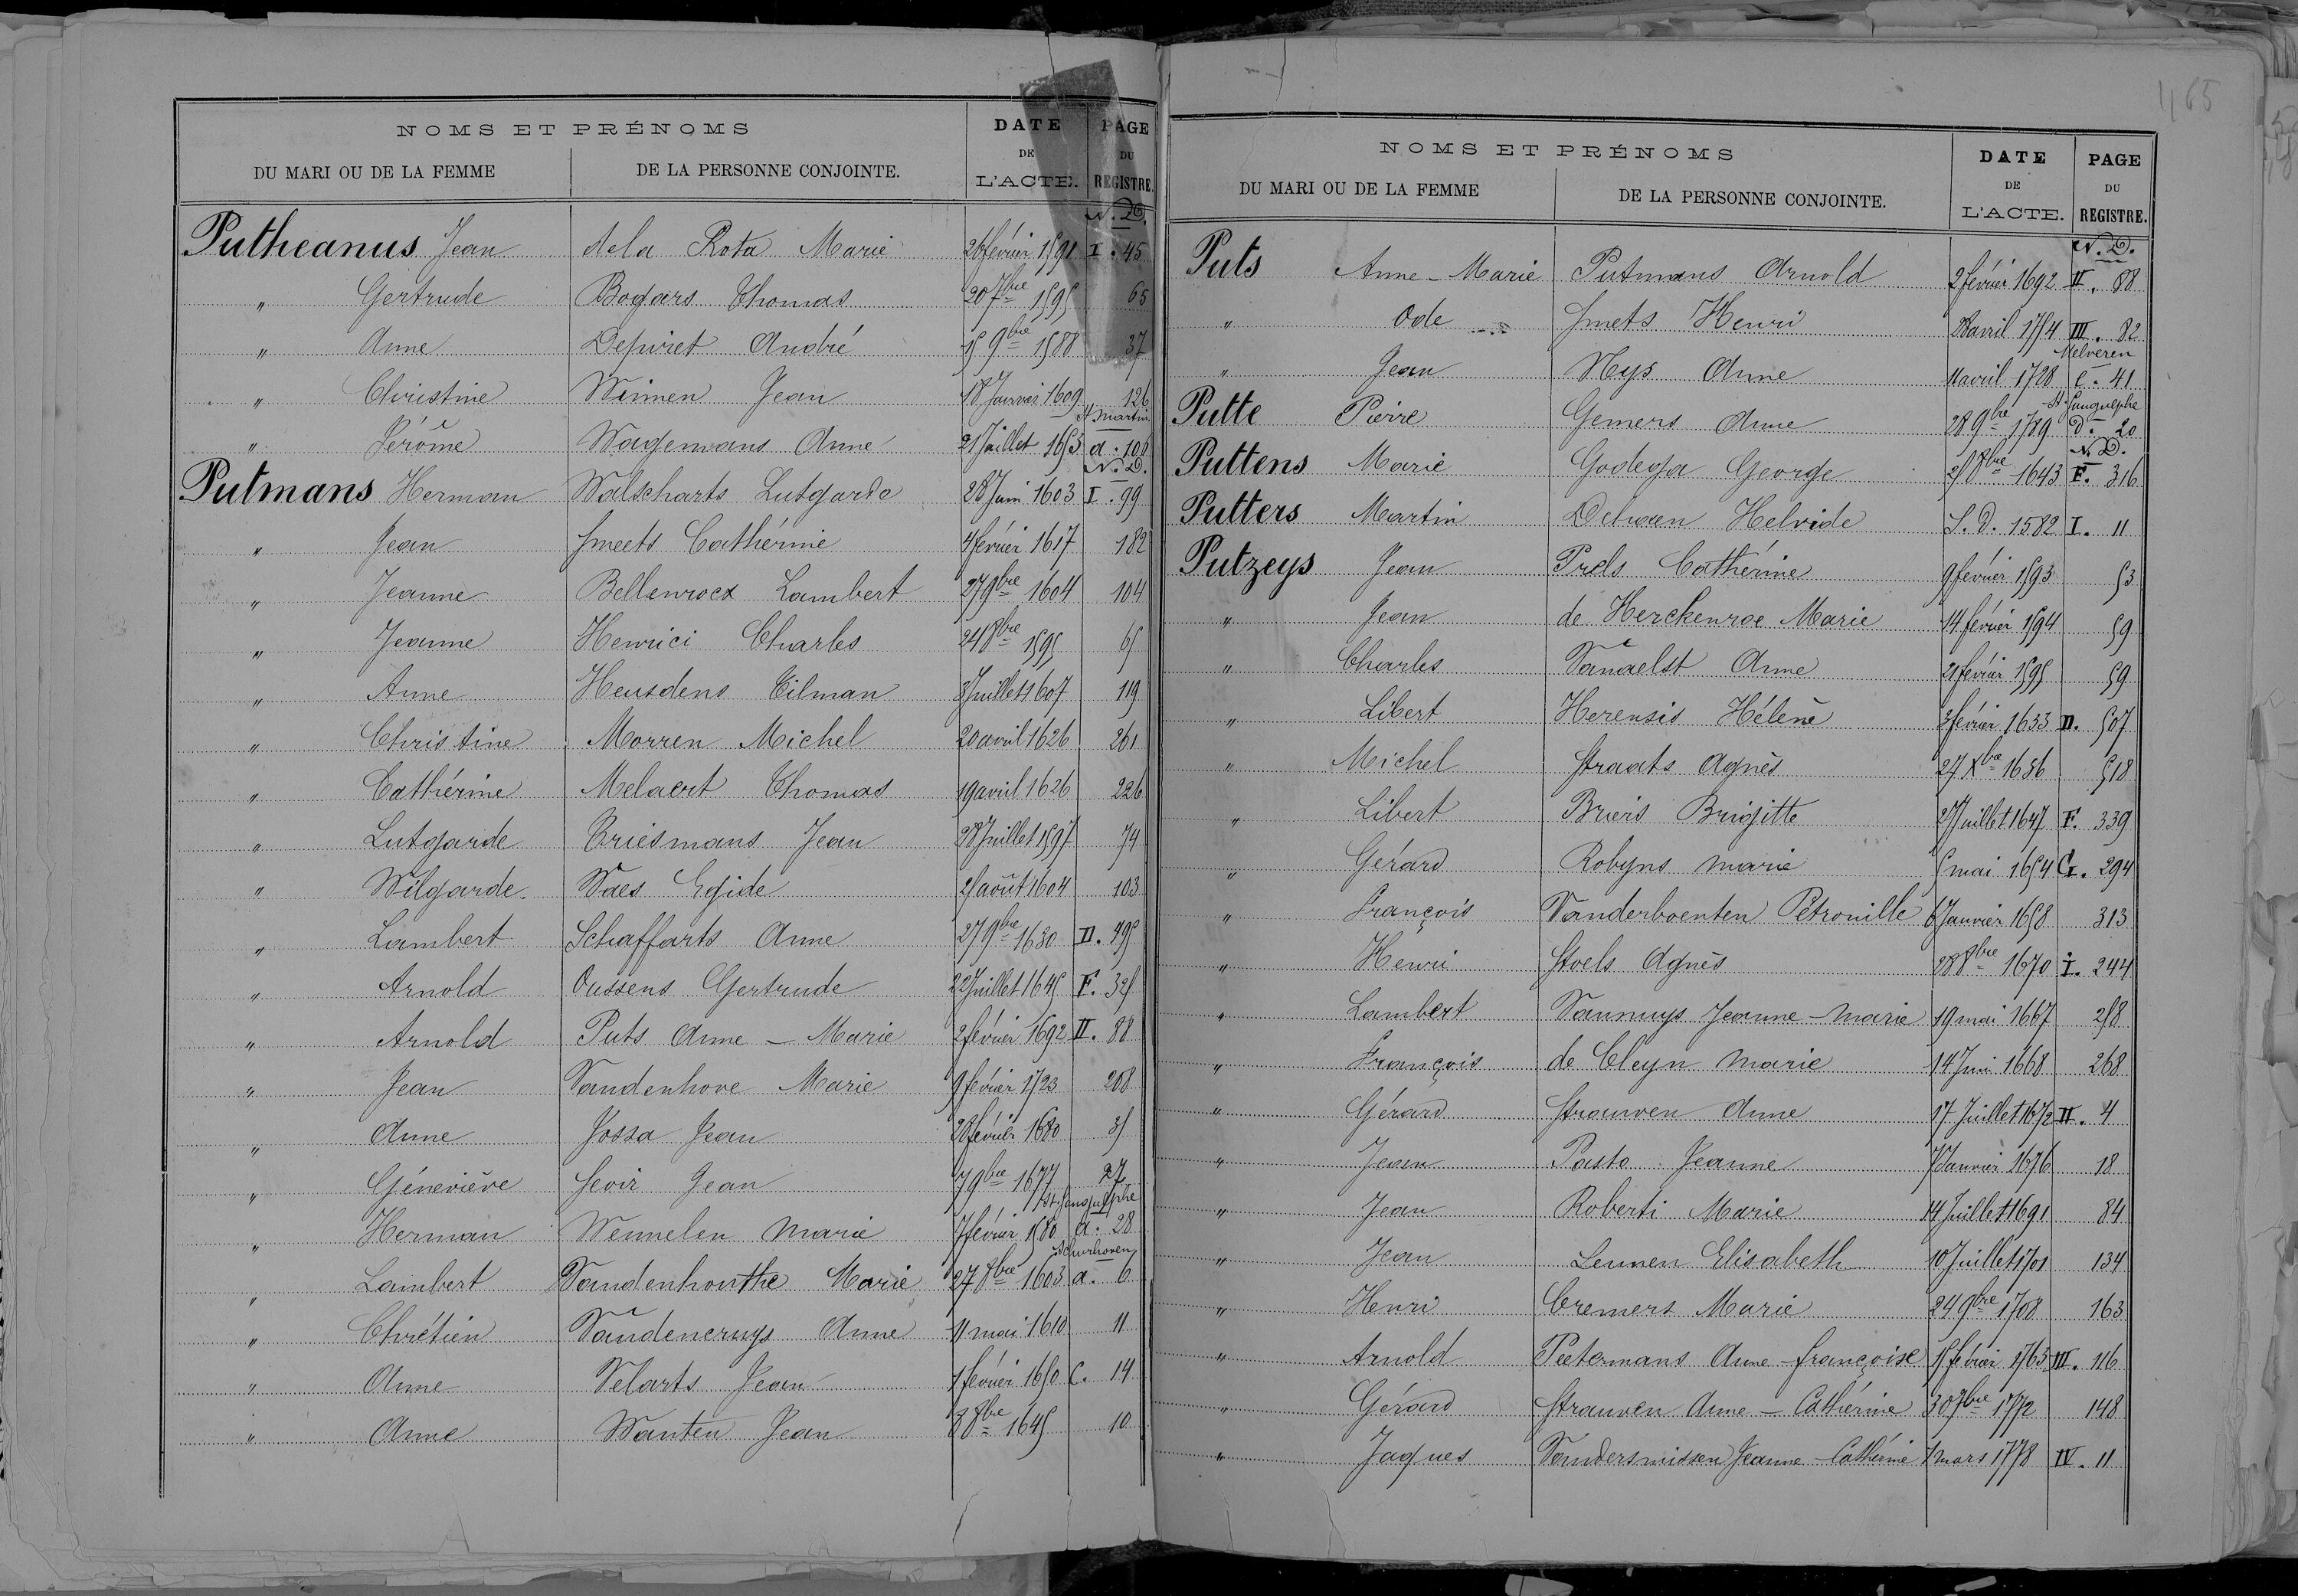 NOMS ET PRÉNOMS
DU MARI OU DE LA FEMME DE LA PERSONNE CONJOINTE. DATE DE L'ACTE. PAGE DU REGISTRE.
N. D.
Putheanus Jean dela Rota Marie 26 février 1591 I. 45
" Gertrude Bogars Thomas 20 7bre 1595 65
" Anne Depiret André 15 9bre 1588 37
" Christine Winnen Jean 18 Janvier 1609 126
St Martin
" Jérôme Wagemans Anne 21 Juillet 1653 a. 106
N. D.
Putmans Herman Walscharts Lutgarde 28 Juin 1603 I. 99
" Jean Smeets Cathérine 4 février 1617 182
" Jeanne Bellenrocx Lambert 27 9bre 1604 104
" Jeanne Henrici Charles 24 8bre 1595 65
" Anne Heusdens Tilman 8 Juillet 1607 119
" Christine Morren Michel 20 avril 1626 261
" Cathérine Melaert Thomas 19 avril 1626 226
" Lutgarde Criesmans Jean 28 Juillet 1597 74
" Wilgarde. Vaes Egide 25 août 1604 103
" Lambert Schaffarts Anne 27 9bre 1630 D. 495
" Arnold Oussens Gertrude 22 Juillet 1645 F. 325
" Arnold Puts Anne - Marie 2 février 1692 II. 88
" Jean Vandenhove Marie 9 février 1723 208
" Anne Jossa Jean 28 février 1680 35
" Géneviève Sevir Jean 7 9bre 1677 27
St Gangulphe
" Herman Wennelen Marie 7 février 1580 a. 28
Schurhoven
" Lambert Vandenhouthe Marie 27 8bre 1603 a. 6
" Chrétien Vandencruys Anne 11 mai 1610 11
" Anne Velarts Jean 1 février 1650 C. 14
" Anne Wanten Jean 8 8bre 1645 10
465
NOMS ET PRÉNOMS
DU MARI OU DE LA FEMME DE LA PERSONNE CONJOINTE. DATE DE L'ACTE. PAGE DU REGISTRE.
N. D.
Puts Anne - Marie Putmans Arnold 2 février 1692 II. 88
" Ode Smets Henri 28 avril 1754 III. 82
Melveren
" Jean Neys Anne 11 avril 1728 C. 41
St Gangulphe
Putte Pierre Gemers Anne 28 9bre 1789 D. 20
N. D.
Puttens Marie Godega George 25 8bre 1643 F. 316
Putters Martin Dehaen Helvide S. D. 1582 I. 11
Putzeys Jean Prels Cathérine 9 février 1593 53
" Jean de Herckenroe Marie 14 février 1594 59
" Charles Vanaelst Anne 21 février 1595 59
" Libert Herensis Hélène 3 février 1633 D. 507
" Michel Straats Agnès 27 Xbre 1636 518
" Libert Brieis Brigitte 27 Juillet 1647 F. 339
" Gérard Robyns Marie 5 mai 1654 G. 294
" François Vanderboenten Pétronille 6 Janvier 1658 313
" Henri Stoels Agnès 28 8bre 1670 I. 244
" Lambert Vannuys Jeanne - Marie 19 mai 1667 258
" François de Cleyn Marie 14 Juin 1668 268
" Gérard Strauven Anne 17 Juillet 1672 II. 4
" Jean Pasto Jeanne 7 Janvier 1676 18
" Jean Roberti Marie 14 Juillet 1691 84
" Jean Leunen Elisabeth 10 Juillet 1701 134
" Henri Cremers Marie 24 9bre 1708 163
" Arnold Peetermans Anne - françoise 15 février 1763 III. 116
" Gérard Strauven Anne - Cathérine 30 7bre 1772 148
" Jaques Vandersmissen Jeanne - Cathérine 1 mars 1778 IV. 11